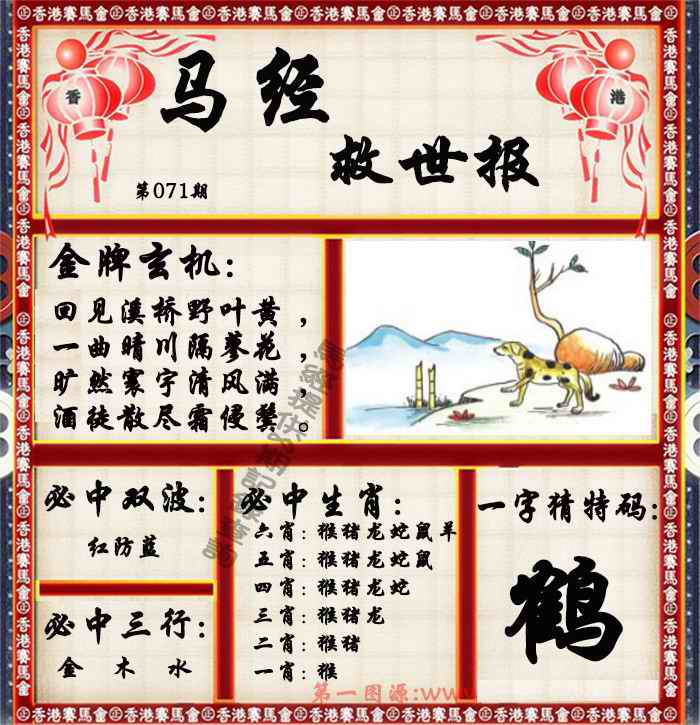 香港賽馬會
香
港
马经
救世报
第071期
金牌玄机：
回见溪桥野叶黄，
一曲晴川隔蓼花，
旷然寰宇清风满，
酒徒散尽霜侵鬓。
必中双波：
红防蓝
必中三行：
金 木 水
必中生肖：
六肖：猴猪龙蛇鼠羊
五肖：猴猪龙蛇鼠
四肖：猴猪龙蛇
三肖：猴猪龙
二肖：猴猪
一肖：猴
一字猜特码：
鹤
第一图源:www